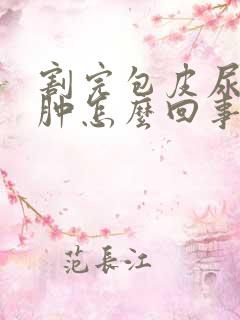 割完包皮尿
肿怎麽回事
范長江